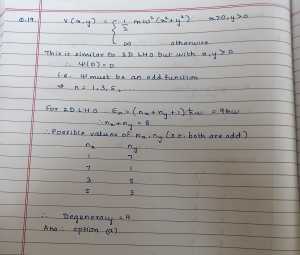 Q.19. V(x,y) = { 1/2 mω²(x²+y²) x>0, y>0
∞ otherwise
This is similar to 2D LHO but with x,y > 0
∴ Ψ(0) = 0
i.e. Ψ must be an odd function
⇒ n = 1, 3, 5, ..
For 2D LHO εn = (nx + ny + 1) ħω = 9ħω
∴ nx + ny = 8
∴ Possible values of nx, ny (i.e. both are odd)
nx ny
1 7
7 1
3 5
5 3
∴ Degeneracy = 4
Ans: option (a)